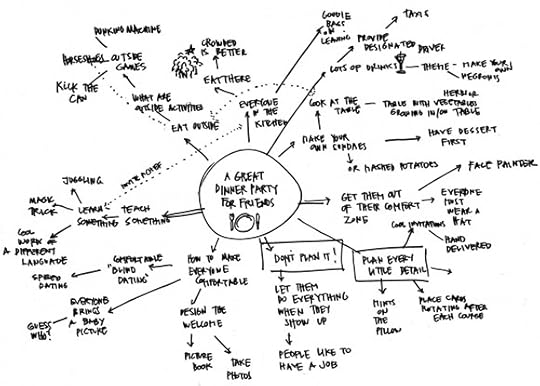 DUNKING MACHINE
HORSESHOES
OUTSIDE
GAMES
KICK THE
CAN
WHAT ARE
OUTSIDE ACTIVITIES
EAT OUTSIDE
CROWDED
IS BETTER
EAT THERE
EVERYONE
IN THE
KITCHEN
GOODIE
BAGS
ON
LEAVING
PROVIDE
DESIGNATED DRIVER
TAXIS
LOTS OF DRINKS
THEME
MAKE YOUR
OWN
NEGRONIS
COOK AT THE
TABLE
TABLE WITH VEGETABLES
GROWING IN/ON TABLE
HERB OR
MAKE YOUR
OWN SUNDAES
HAVE DESSERT
FIRST
OR MASHED POTATOES
A GREAT
DINNER PARTY
FOR FRIENDS
GET THEM OUT
OF THEIR COMFORT
ZONE
FACE PAINTER
EVERYONE
MUST
WEAR A
HAT
COOL INVITATIONS
HAND
DELIVERED
PLAN EVERY
LITTLE DETAIL
MINTS
ON
THE
PILLOW
PLACE CARDS
ROTATING AFTER
EACH COURSE
DON'T PLAN IT!
LET THEM
DO EVERYTHING
WHEN THEY
SHOW UP
PEOPLE LIKE TO
HAVE A JOB
HOW TO MAKE
EVERYONE
COMFORTABLE
DESIGN THE
WELCOME
PICTURE
BOOK
TAKE
PHOTOS
COMFORTABLE
"BLIND
DATING"
SPEED
DATING
EVERYONE
BRINGS
A BABY
PICTURE
GUESS
WHO?
TEACH
SOMETHING
LEARN
SOMETHING
JUGGLING
MAGIC
TRICK
COOL
WORD OF
A DIFFERENT
LANGUAGE